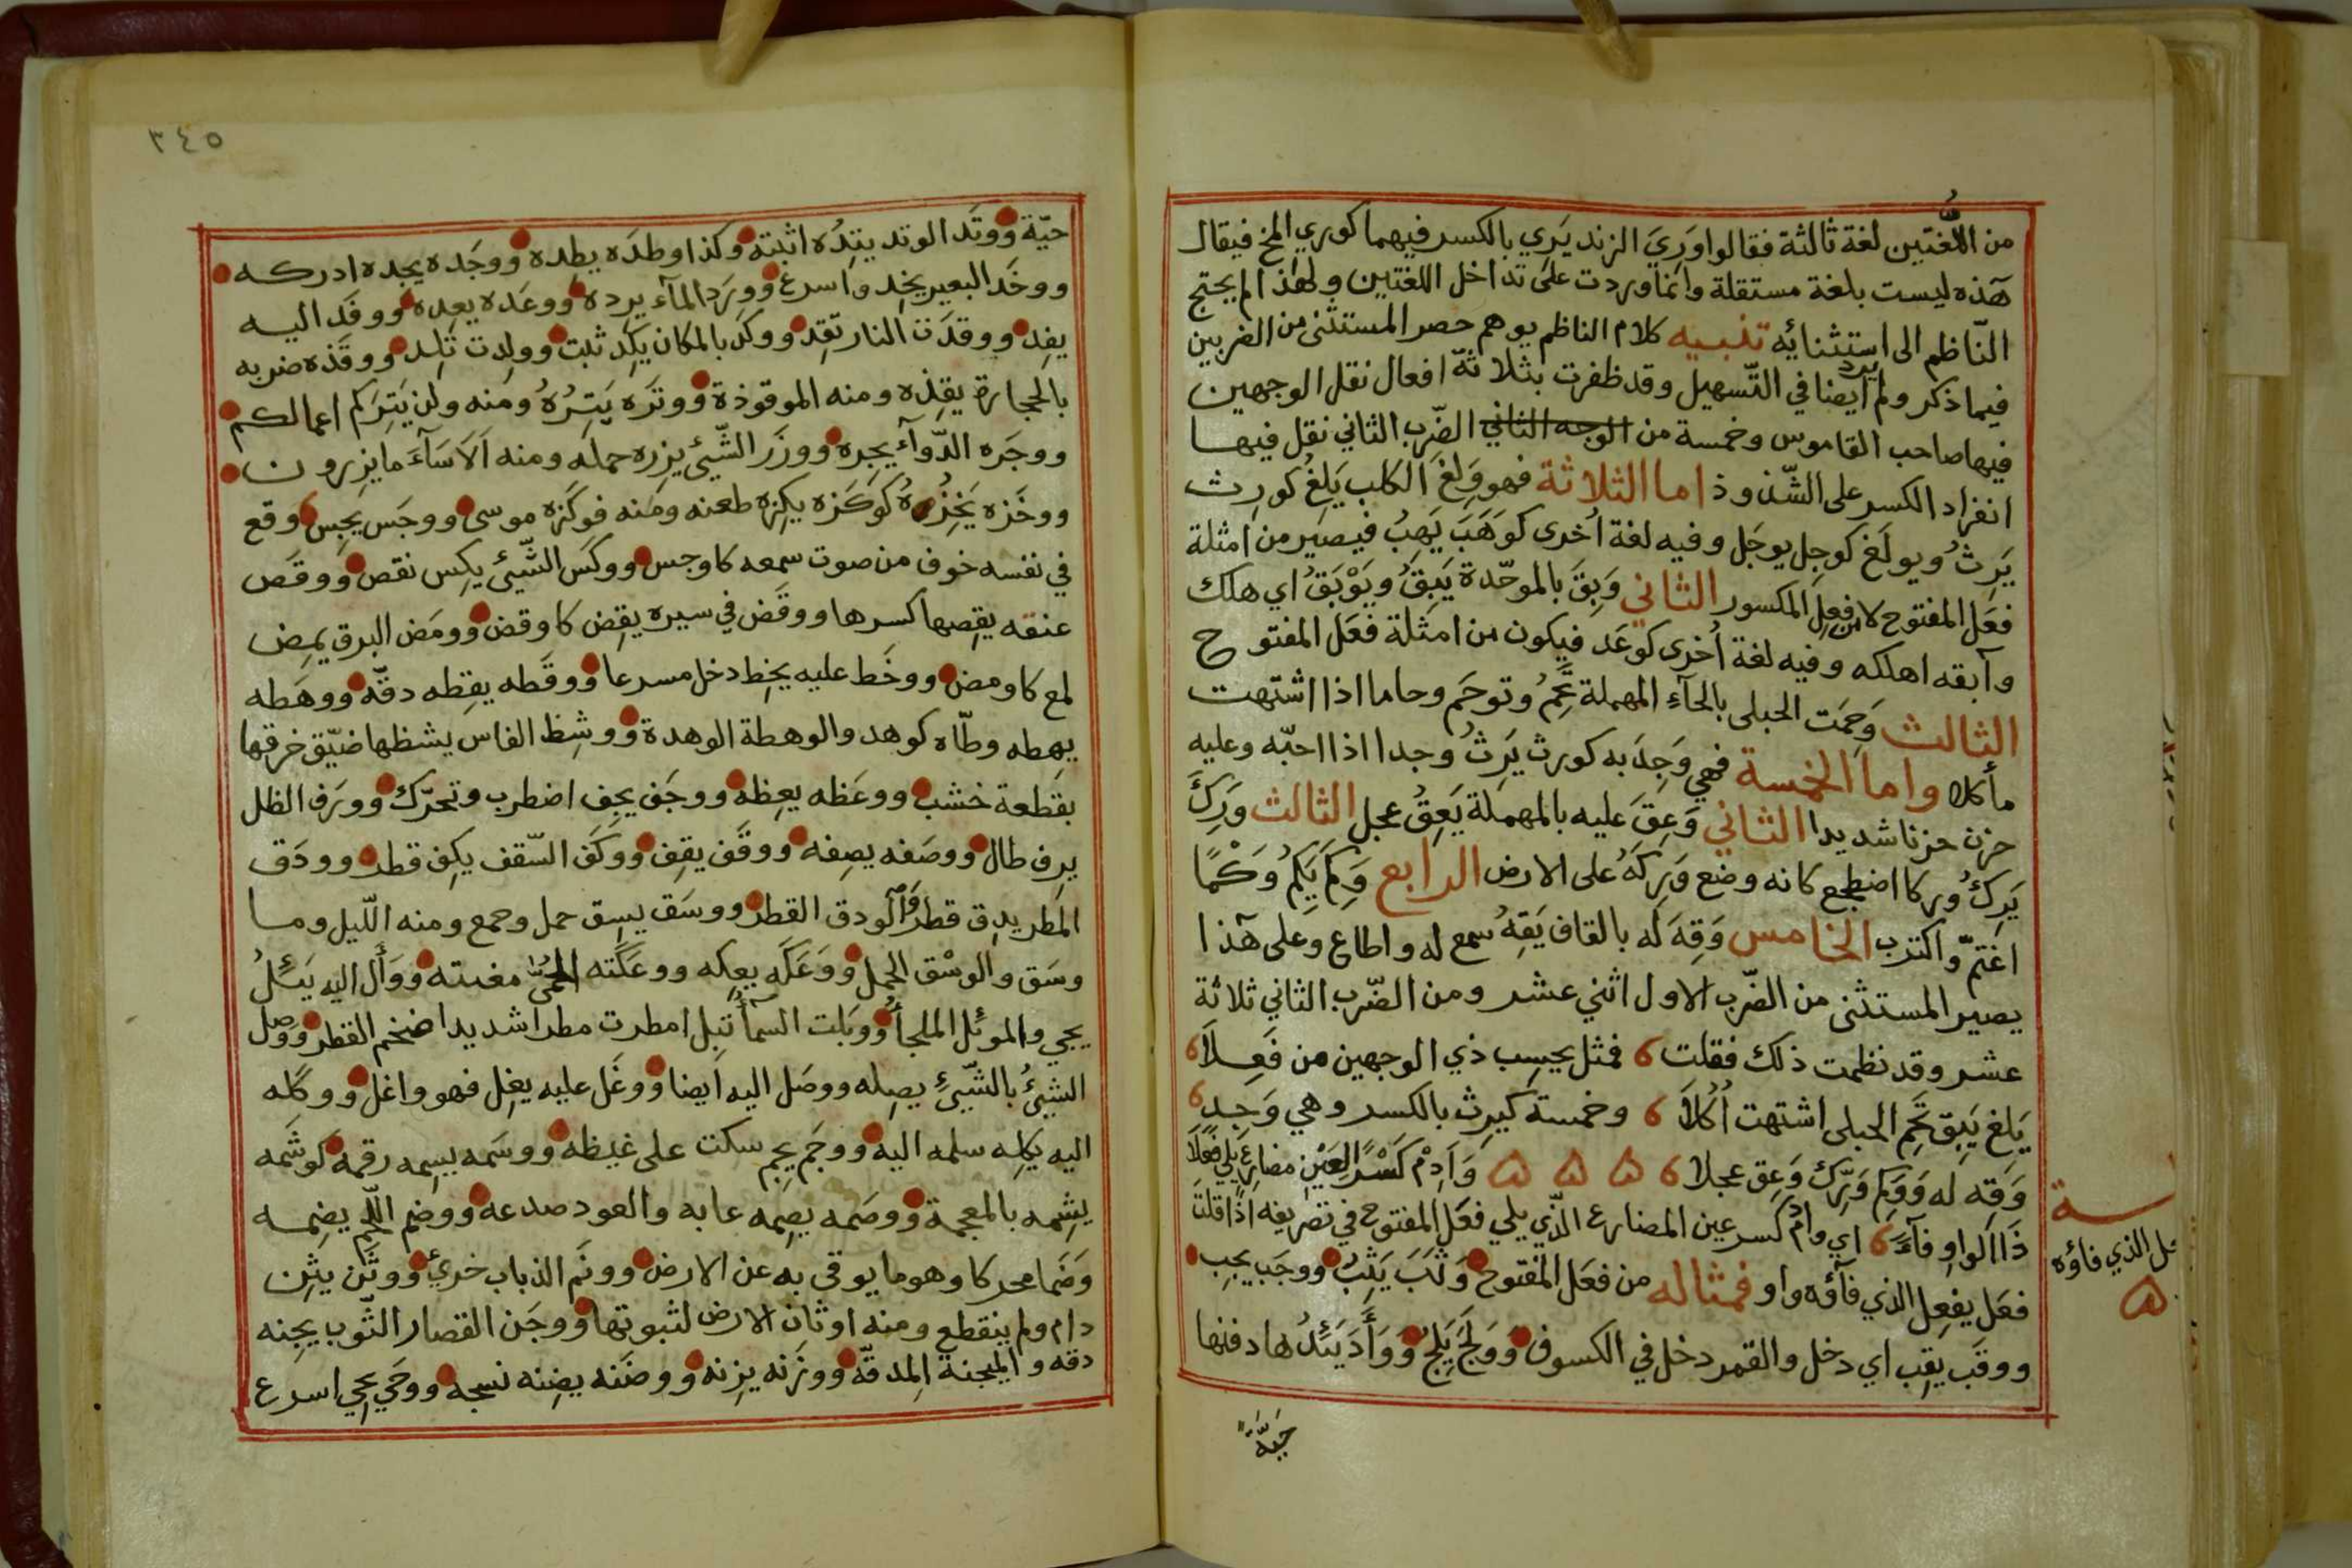 من اللُّغتين لغة ثالثة فقالوا وَرِيَ الزند يَرِي بالكسر فيهما كوري المخ فيقال
هٓذه ليست بلغة مستقلة وانما وردت على تداخل اللغتين ولهٰذا لم يحتج
النّاظم الى استثنائه تنبيه كلام الناظم يوهم حصر المستثنى من الضربين
فيما ذكر ولم يزد ايضا في التّسهيل وقد ظفرت بثلاثة افعال نقل الوجهين
فيها صاحب القاموس وخمسة من الوجه الثاني الضّرب الثاني نقل فيها
انفراد الكسر على الشّذوذ اما الثلاثة فهو وَلِغَ الكلب يَلِغُ كورِث
يَرِثُ ويولَغ كوجِل يوجَل وفيه لغة اُخرى كوَهَبَ يَهِبُ فيصير من امثلة
فعَل المفتوح لا من فعِل المكسور الثاني وَبِقَ بالموحّدة يَبِقُ ويَوْبَقُ اي هلك
وآبقه اهلكه وفيه لغة اُخرى كوعَد فيكون من امثلة فعَل المفتوح
الثالث وَحِمَت الحبلى بالحآء المهملة تَحِمُ وتوحَم وحاما اذا اشتهت
مأكلا واما الخمسة فهي وَجِدَ به كورث يَرِثُ وجدا اذا احبّه وعليه
حزن حزنا شديدا الثاني وَعِقَ عليه بالمهملة يَعِقُ عجل الثالث وَرِكَ
يَرِكُ وركا اضطجع كانه وضع وَرِكَهُ على الارض الرابع وَكِمَ يَكِمُ وَكْمًا
اغتمّ واكترب الخامس وَقِهَ له بالقاف يَقِهُ سمع له واطاع وعلى هٓذا
يصير المستثنى من الضّرب الاول اثني عشر ومن الضّرب الثاني ثلاثة
عشر وقد نظمت ذلك فقلت ٦ فمثل يحسِب ذي الوجهين من فَعِلَا ٦
يَلغ يَبِق تَحِم الحبلى اشتهت اُكُلَا ٦ وخمسة كيرِث بالكسر وهي وَجِد ٦
وَقِه له وَوَكِم وَرِك وَعِق عجلا ٦ ۵ ۵ ۵ وَاَدِمْ كَسْرَ العَيْنِ مضارع يلي فَعَلَا
ذَا الواوِ فآءً ٦ اي وادم كسر عين المضارع الذّي يلي فعَل المفتوح في تصريفه اذا قلت
فعَل يفعِل الذي فآؤه واو فمثاله من فعَل المفتوح وَثَبَ يَثِبُ ووجَب يجِب
ووقَب يقِب اي دخل والقمر دخل في الكسوف وَوَلَجَ يَلِجُ وَوَأَدَ يَئِدُ ها دفنها
حَيَّةً
ئل الذي فاؤه
٣٤٥
حيّة ووتَد الوتد يتِدُه اثبته وكذا وطدَه يطِده ووجَده يجِده ادركه
ووخَد البعير يخِد واسرع وورَد المآء يرِده ووعَده يعِده ووفَد اليه
يفِد ووقدَت النار تقِد ووكد بالمكان يكِد ثبت وولِدت تلِد ووقَذه ضربه
بالحجارة يقِذه ومنه الموقوذة ووتَره يَتِرُهُ ومنه ولن يَتِرَكم اعمالكم
ووجَره الدّوآء يجِره ووزَر الشّيئ يزِره حمله ومنه اَلَاسَآءَ مايزِرون
ووخَزه يَخِزُهُ كوكَزه يكِزه طعنه ومنه فوكَزه موسى ووجَس يجِس وقع
في نفسه خوف من صوت سمعه كاوجس ووكَس الشّيئ يكِس نقص ووقَص
عنقه يقِصها كسرها ووقَض في سيره يقِض كاوقض وومَض البرق يمِض
لمع كاومض ووخَط عليه يخِط دخل مسرعا ووقَطه يقِطه دقّه ووهَطه
يهِطه وطّاه كوهد والوهطة الوهدة ووشِظ الفاس يشظها ضيّق خرقها
بقطعة خشب ووعَظه يعِظه ووجَف يجِف اضطرب وتحرّك وورَف الظل
يرِف طال ووصَفه يصِفه ووقَف يقِف ووكَف السّقف يكِف قطر وودَق
المطر يدِق قطر والودق القطر ووسَق يسِق حمل وجمع ومنه اللّيل وما
وسَق والوسْق الحمل ووَعَكَه يعِكه ووعَكَته الحُمّى مغثته ووَأَل اليه يَئِلُ
يجي والموئل الملجأ ووبَلت السمآ تبِل امطرت مطرا شديدا ضخم القطر ووصَل
الشيئُ بالشّيئ يصِله ووصَل اليه ايضا ووغَل عليه يغِل فهو واغل ووكَله
اليه يكِله سلمه اليه ووجَم يجِم سكت على غيظه ووسَمه يسِمه رقمه كوشَمه
يشِمه بالمعجمة ووصَمه يصِمه عابه والعود صدعه ووضم اللّحم يضِمه
وَضَما محركا وهو ما يوقى به عن الارض وونَم الذباب خرئ ووثَن يثِن
دام ولم ينقطع ومنه اوثان الارض لثبوتها ووجَن القصار الثّوب يجِنه
دقه والميجنة المِدقّة ووزَنه يزِنه ووضَنه يضِنه نسجه ووحَي يحِي اسرع